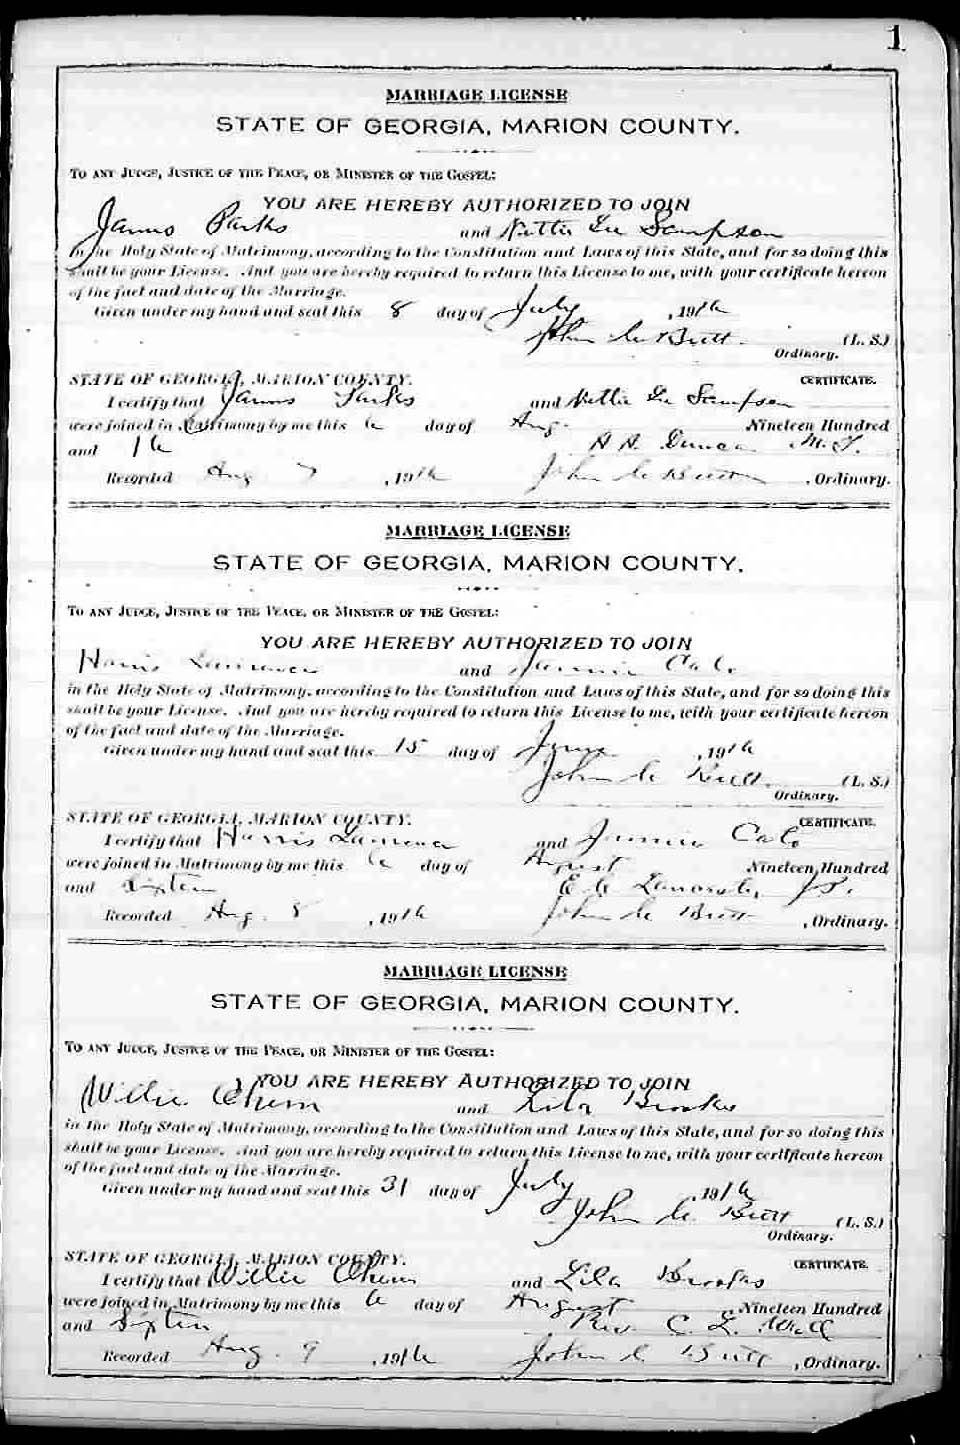 1
MARRIAGE LICENSE
STATE OF GEORGIA, MARION COUNTY.
TO ANY JUDGE, JUSTICE OF THE PEACE, OR MINISTER OF THE GOSPEL:
YOU ARE HEREBY AUTHORIZED TO JOIN
James Parks and Nettie Lee Sampson
in the Holy State of Matrimony, according to the Constitution and Laws of this State, and for so doing this
shall be your License. And you are hereby required to return this License to me, with your certificate hereon
of the fact and date of the Marriage.
Given under my hand and seal this 8 day of July, 1916
John C. Butt. (L. S.)
Ordinary.
STATE OF GEORGIA, MARION COUNTY. CERTIFICATE.
I certify that James Parks and Nettie Lee Sampson
were joined in Matrimony by me this 6 day of Aug. Nineteen Hundred
and 16 A. A. Duncan M. G.
Recorded Aug 7, 1916 John C. Butt, Ordinary.
MARRIAGE LICENSE
STATE OF GEORGIA, MARION COUNTY.
TO ANY JUDGE, JUSTICE OF THE PEACE, OR MINISTER OF THE GOSPEL:
YOU ARE HEREBY AUTHORIZED TO JOIN
Harris and
in the Holy State of Matrimony, according to the Constitution and Laws of this State, and for so doing this
shall be your License. And you are hereby required to return this License to me, with your certificate hereon
of the fact and date of the Marriage.
Given under my hand and seal this 15 day of June, 1916
John C. Butt. (L. S.)
Ordinary.
STATE OF GEORGIA, MARION COUNTY. CERTIFICATE.
I certify that Harris and
were joined in Matrimony by me this 6 day of August Nineteen Hundred
and Sixteen E. C. J.P.
Recorded Aug. 8, 1916 John C. Butt, Ordinary.
MARRIAGE LICENSE
STATE OF GEORGIA, MARION COUNTY.
TO ANY JUDGE, JUSTICE OF THE PEACE, OR MINISTER OF THE GOSPEL:
YOU ARE HEREBY AUTHORIZED TO JOIN
Willie and Lila Brooks
in the Holy State of Matrimony, according to the Constitution and Laws of this State, and for so doing this
shall be your License. And you are hereby required to return this License to me, with your certificate hereon
of the fact and date of the Marriage.
Given under my hand and seal this 31 day of July, 1916
John C. Butt (L. S.)
Ordinary.
STATE OF GEORGIA, MARION COUNTY. CERTIFICATE.
I certify that Willie and Lila Brooks
were joined in Matrimony by me this 6 day of August Nineteen Hundred
and Sixteen Rev. C. L.
Recorded Aug. 9, 1916 John C. Butt, Ordinary.